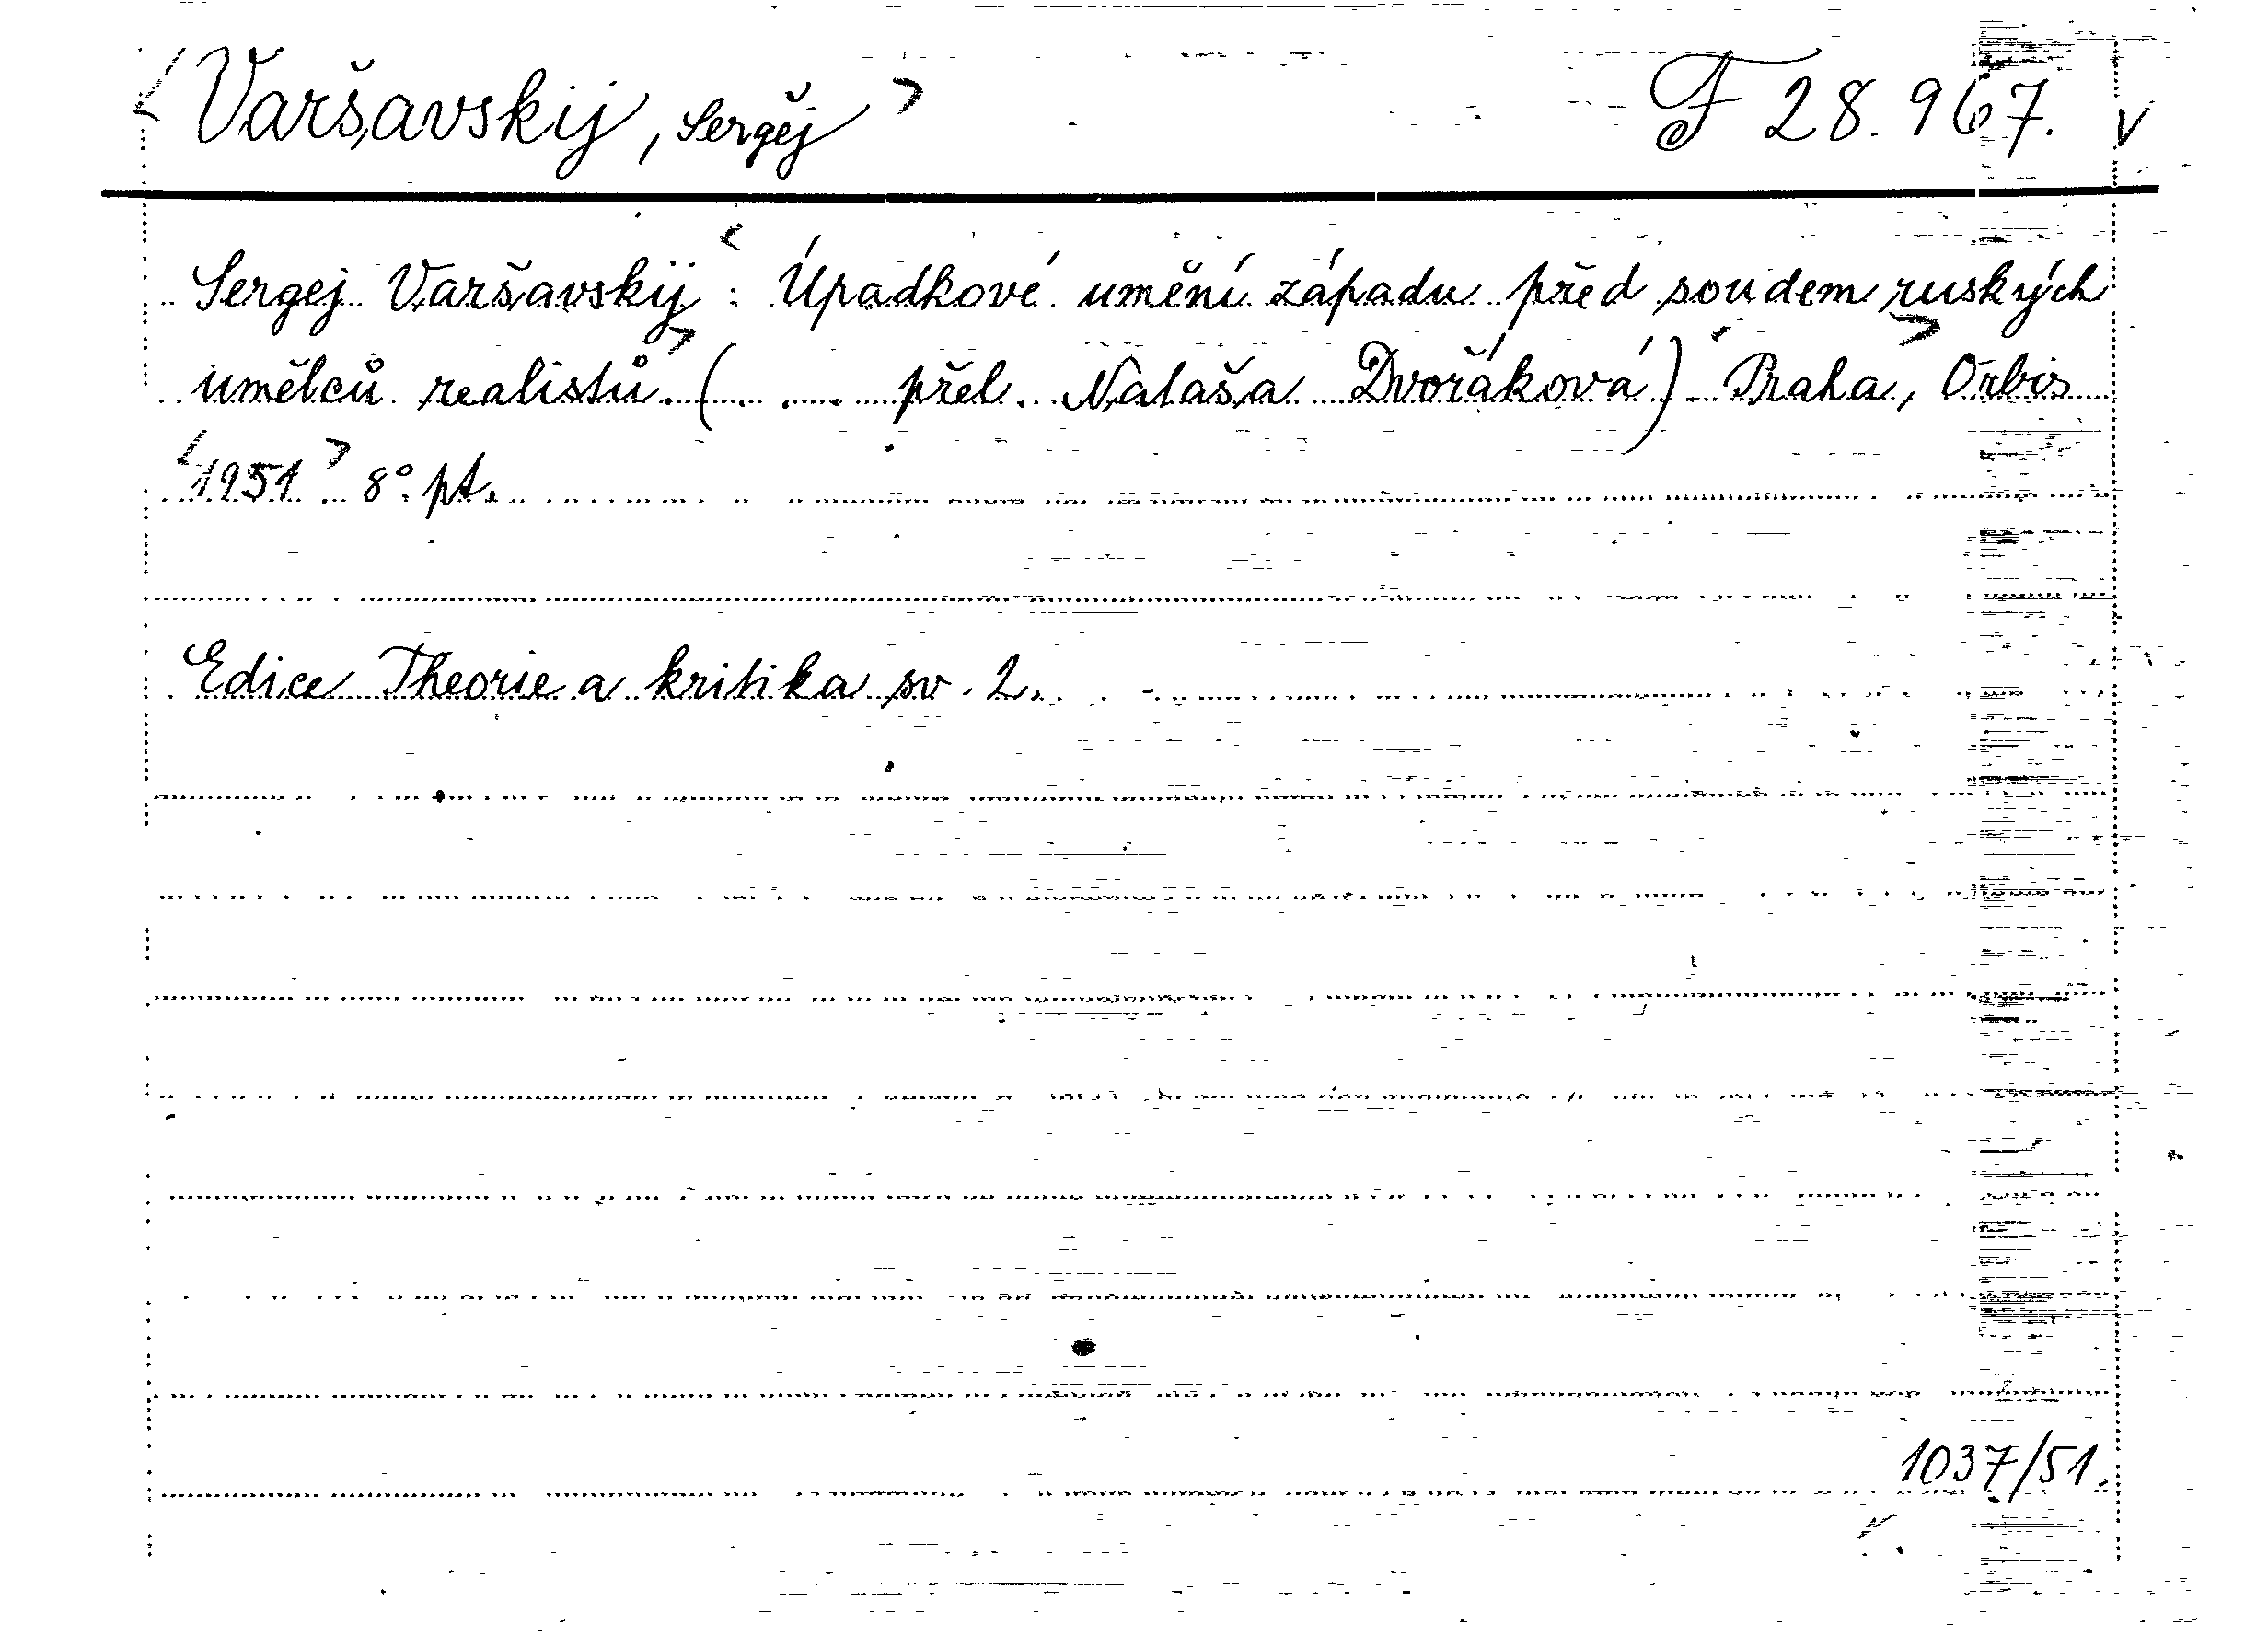 Varšavskij, Sergěj F 28.967. v
Sergej Varšavskij: Úpadkové umění západu před soudem ruských
umělců realistů. (. . . přel. Nataša Dvořáková) Praha, Orbis
1951 8° pt.
Edice Theorie a kritika sv. 2.
1037/51.